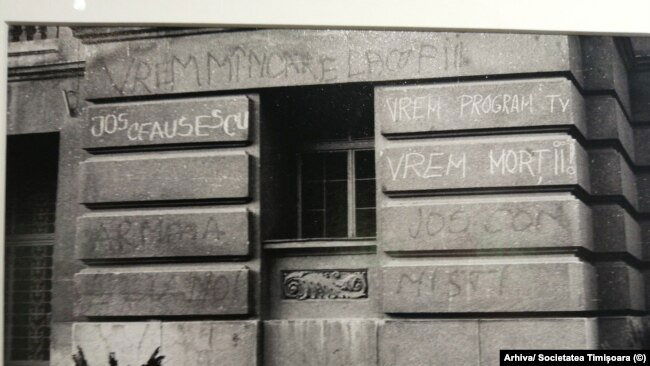 VREM MÎNCARE LA COPII
JOS CEAUSESCU
ARMATA
NOI
VREM PROGRAM TV
VREM MORȚII!
JOS COM
MIȘTI
Arhiva/ Societatea Timișoara (©)